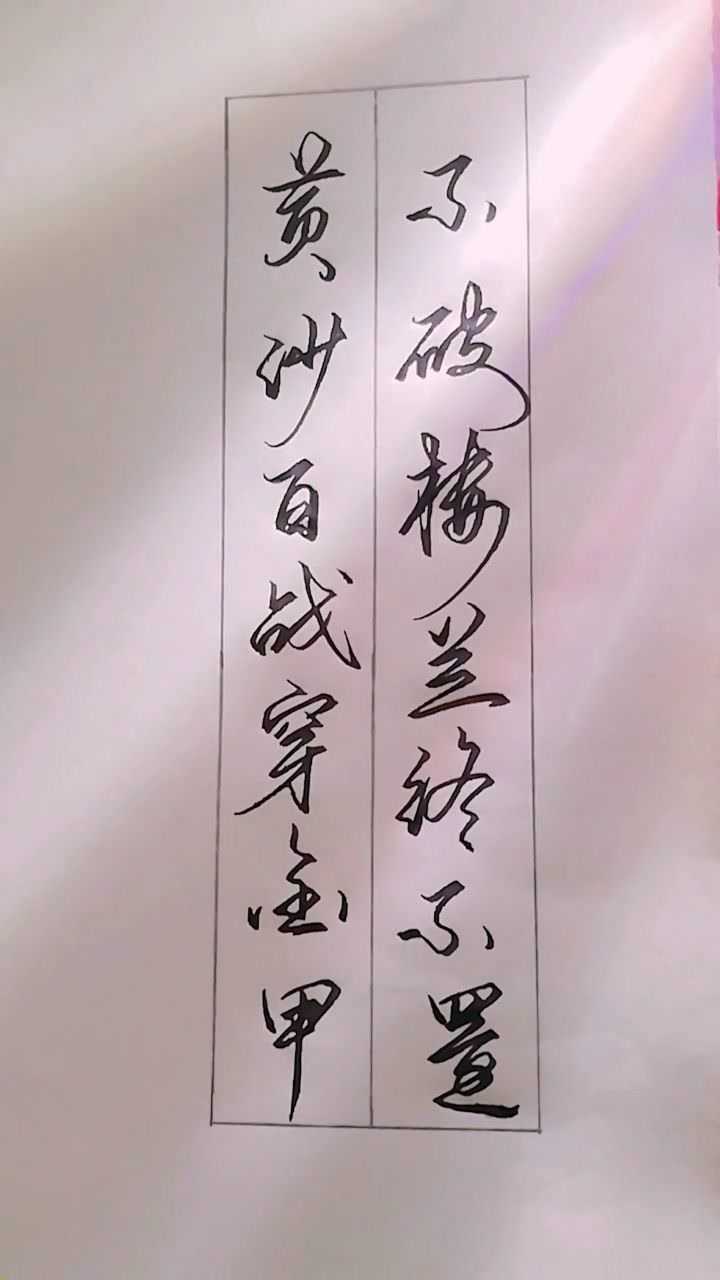 黄沙百战穿金甲
不破楼兰终不還